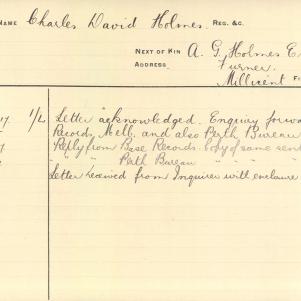 NAME Charles David Holmes. REG. &C.
NEXT OF KIN A. G. Holmes E
ADDRESS Turner
Millicent F
17 1/2 Letter acknowledged. Enquiry forwa
Records, Melb. and also Perth Bureau
Reply from Base Records. Copy of same sent
" " Perth Bureau " " " "
Letter received from Inquirer with enclosure